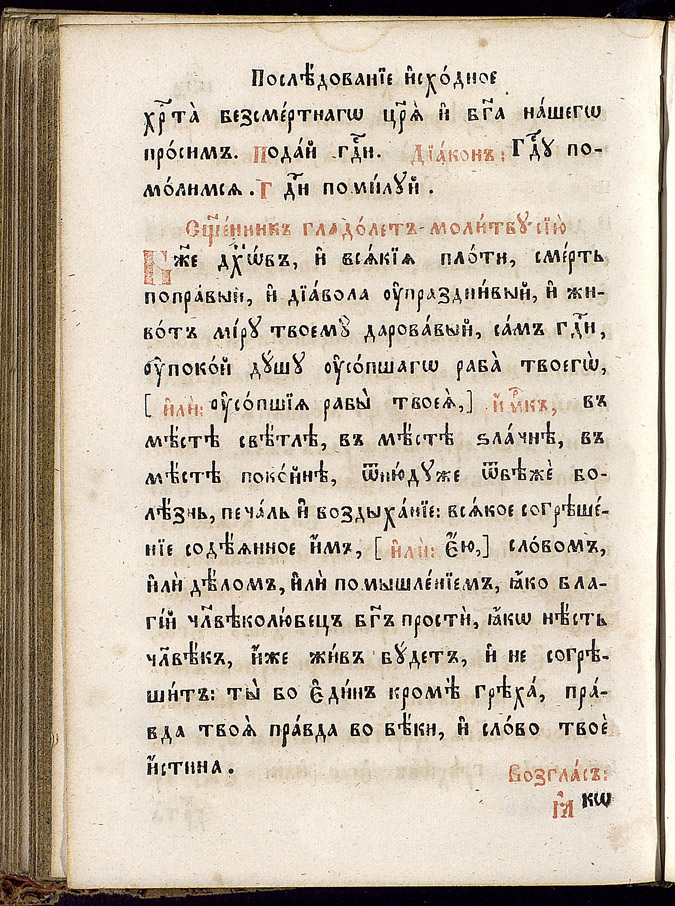 Послѣ́дованїе и҆схо́дное
хрⷭ҇та̀ безсме́ртнагѡ цр҃ѧ̀ и҆ бг҃а на́шегѡ
про́симъ. Пода́й гдⷭ҇и. Дїа́конъ: Гдⷭ҇ꙋ по-
мо́лимсѧ. Гдⷭ҇и поми́лꙋй.
Сщ҃е́нникъ глаго́летъ моли́твꙋ сїю̀
Бж҃е дꙋхѡ́въ, и҆ всѧ́кїѧ пло́ти, сме́рть
попра́вый, и҆ дїа́вола ѹ҆праздни́вый, и҆ жи-
во́тъ мі́рꙋ твоемꙋ̀ дарова́вый, са́мъ гдⷭ҇и,
ѹ҆поко́й дꙋ́шꙋ ѹ҆со́пшагѡ раба̀ твоегѡ̀,
[ и҆лѝ: ѹ҆со́пшїѧ рабы̀ твоеѧ̀,] и҆́мкъ, въ
мѣ́стѣ свѣ́тлѣ, въ мѣ́стѣ ѕла́чнѣ, въ
мѣ́стѣ поко́йнѣ, ѿню́дꙋже ѿбѣжѐ бо-
лѣ́знь, печа́ль и҆ воздыха́нїе: всѧ́кое согрѣше́-
нїе содѣ́ѧнное и҆́мъ, [ и҆лѝ: є҆́ю,] сло́вомъ,
и҆лѝ дѣ́ломъ, и҆лѝ помышле́нїемъ, ꙗ҆́ко бла-
гі́й чл҃вѣколю́бецъ бг҃ъ простѝ, ꙗ҆́кѡ нѣ́сть
чл҃вѣ́къ, и҆́же жи́въ бꙋ́детъ, и҆ не согрѣ-
ши́тъ: ты́ бо є҆ди́нъ кромѣ̀ грѣха́, пра́-
вда твоѧ̀ пра́вда во вѣ́ки, и҆ сло́во твоѐ
и҆́стина.
Возгла́съ:
Ꙗ҆́кѡ